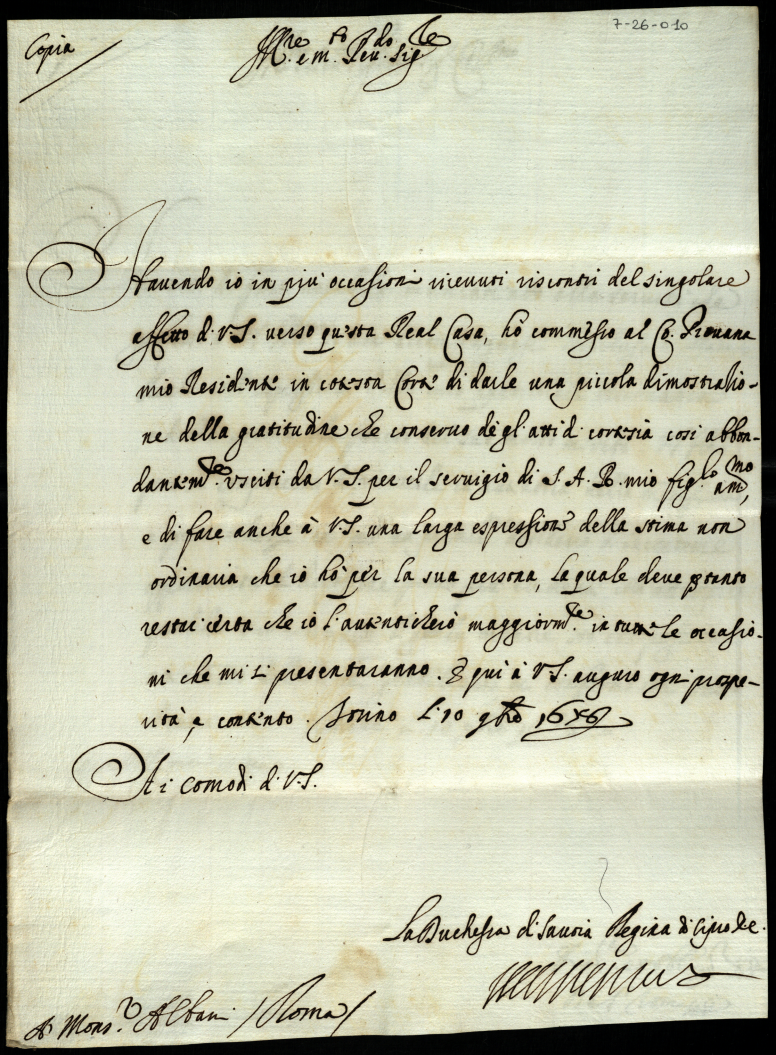 7-26-010
Copia
Ill.re e m.to Rev.do Sig.re
Havendo io in più occasioni ricevuti riscontri del singolare
affetto di V.S. verso questa Real Casa, hò commesso al Co. Provana
mio Residente in cotesta Corte di darle una piccola dimostratio-
ne della gratitudine che conservo de gl'atti di cortesia così abbon-
dantem.te usciti da V.S. per il servigio di S. A. R. mio figl.lo am.mo,
e di fare anche à V.S. una larga espressione della stima non
ordinaria che io hò per la sua persona, la quale deve p tanto
restar certa che io l'autenticherò maggiorm.te in tutte le occasio-
ni che mi si presentaranno. E qui à V.S. auguro ogni prospe-
rità, e contento. Torino li 10 9bre
Ai comodi di V.S.
La Duchessa di Savoia Regina di Cipro &c.
A Mons.r Albani / Roma /